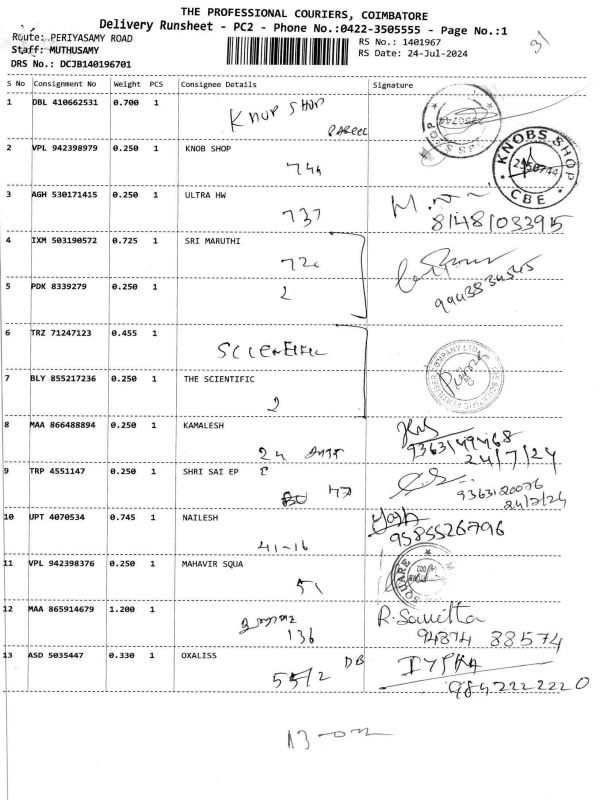 THE PROFESSIONAL COURIERS, COIMBATORE
Delivery Runsheet - PC2 - Phone No.:0422-3505555 - Page No.:1
Route: PERIYASAMY ROAD
Staff: MUTHUSAMY
DRS No.: DCJB140196701
RS No.: 1401967
RS Date: 24-Jul-2024
31
S No Consignment No Weight PCS Consignee Details Signature
1 DBL 410662531 0.700 1 KNOB SHOP
PARCEL
2 VPL 942398979 0.250 1 KNOB SHOP
KNOBS SHOP
2350744
CBE
3 AGH 530171415 0.250 1 ULTRA HW
737 81481033915
4 IXM 503190572 0.725 1 SRI MARUTHI
5 PDK 8339279 0.250 1
2 9943834545
6 TRZ 71247123 0.455 1
SCIENEIFIC
7 BLY 855217236 0.250 1 THE SCIENTIFIC
2
8 MAA 866488894 0.250 1 KAMALESH
24 9363149468
24/7/24
9 TRP 4551147 0.250 1 SHRI SAI EP
77 9363120076
24/7/24
10 UPT 4070534 0.745 1 NAILESH Yash
41-16 9585526796
11 VPL 942398376 0.250 1 MAHAVIR SQUA
51 SQUARE
12 MAA 865914679 1.200 1 R. Savitta
136 94874 88574
13 ASD 5035447 0.330 1 OXALISS
55/2 DB 9842222220